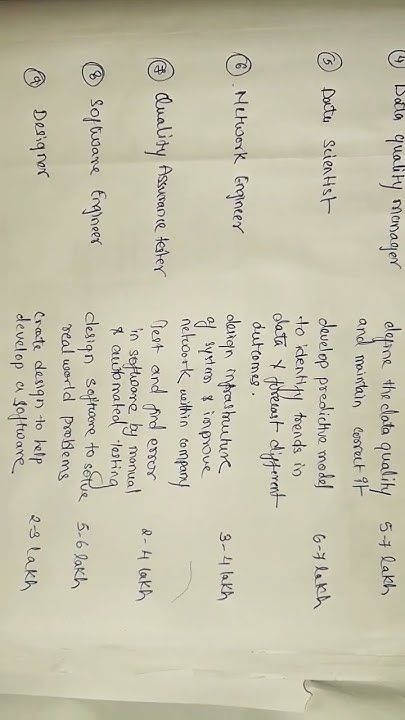 ④ Data quality manager define the data quality 5-7 lakh
and maintain correct it
⑤ Data Scientist develop predictive model 6-7 lakh
to identify trends in
data & forecast different
outcomes.
⑥ Network Engineer design infrastructure 3-4 lakh
of system & improve
network within company
⑦ Quality Assurance tester Test and find error 2-4 lakh
in software by manual
& automated testing
⑧ Software Engineer design software to solve 5-6 lakh
real world problems
⑨ Designer Create design to help 2-3 lakh
develop a software